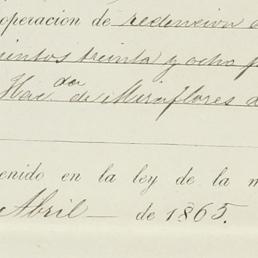 operacion de redension
ientos treinta y ocho
Hac.da de Miraflores
enido en la ley de la m
Abril — de 1865.